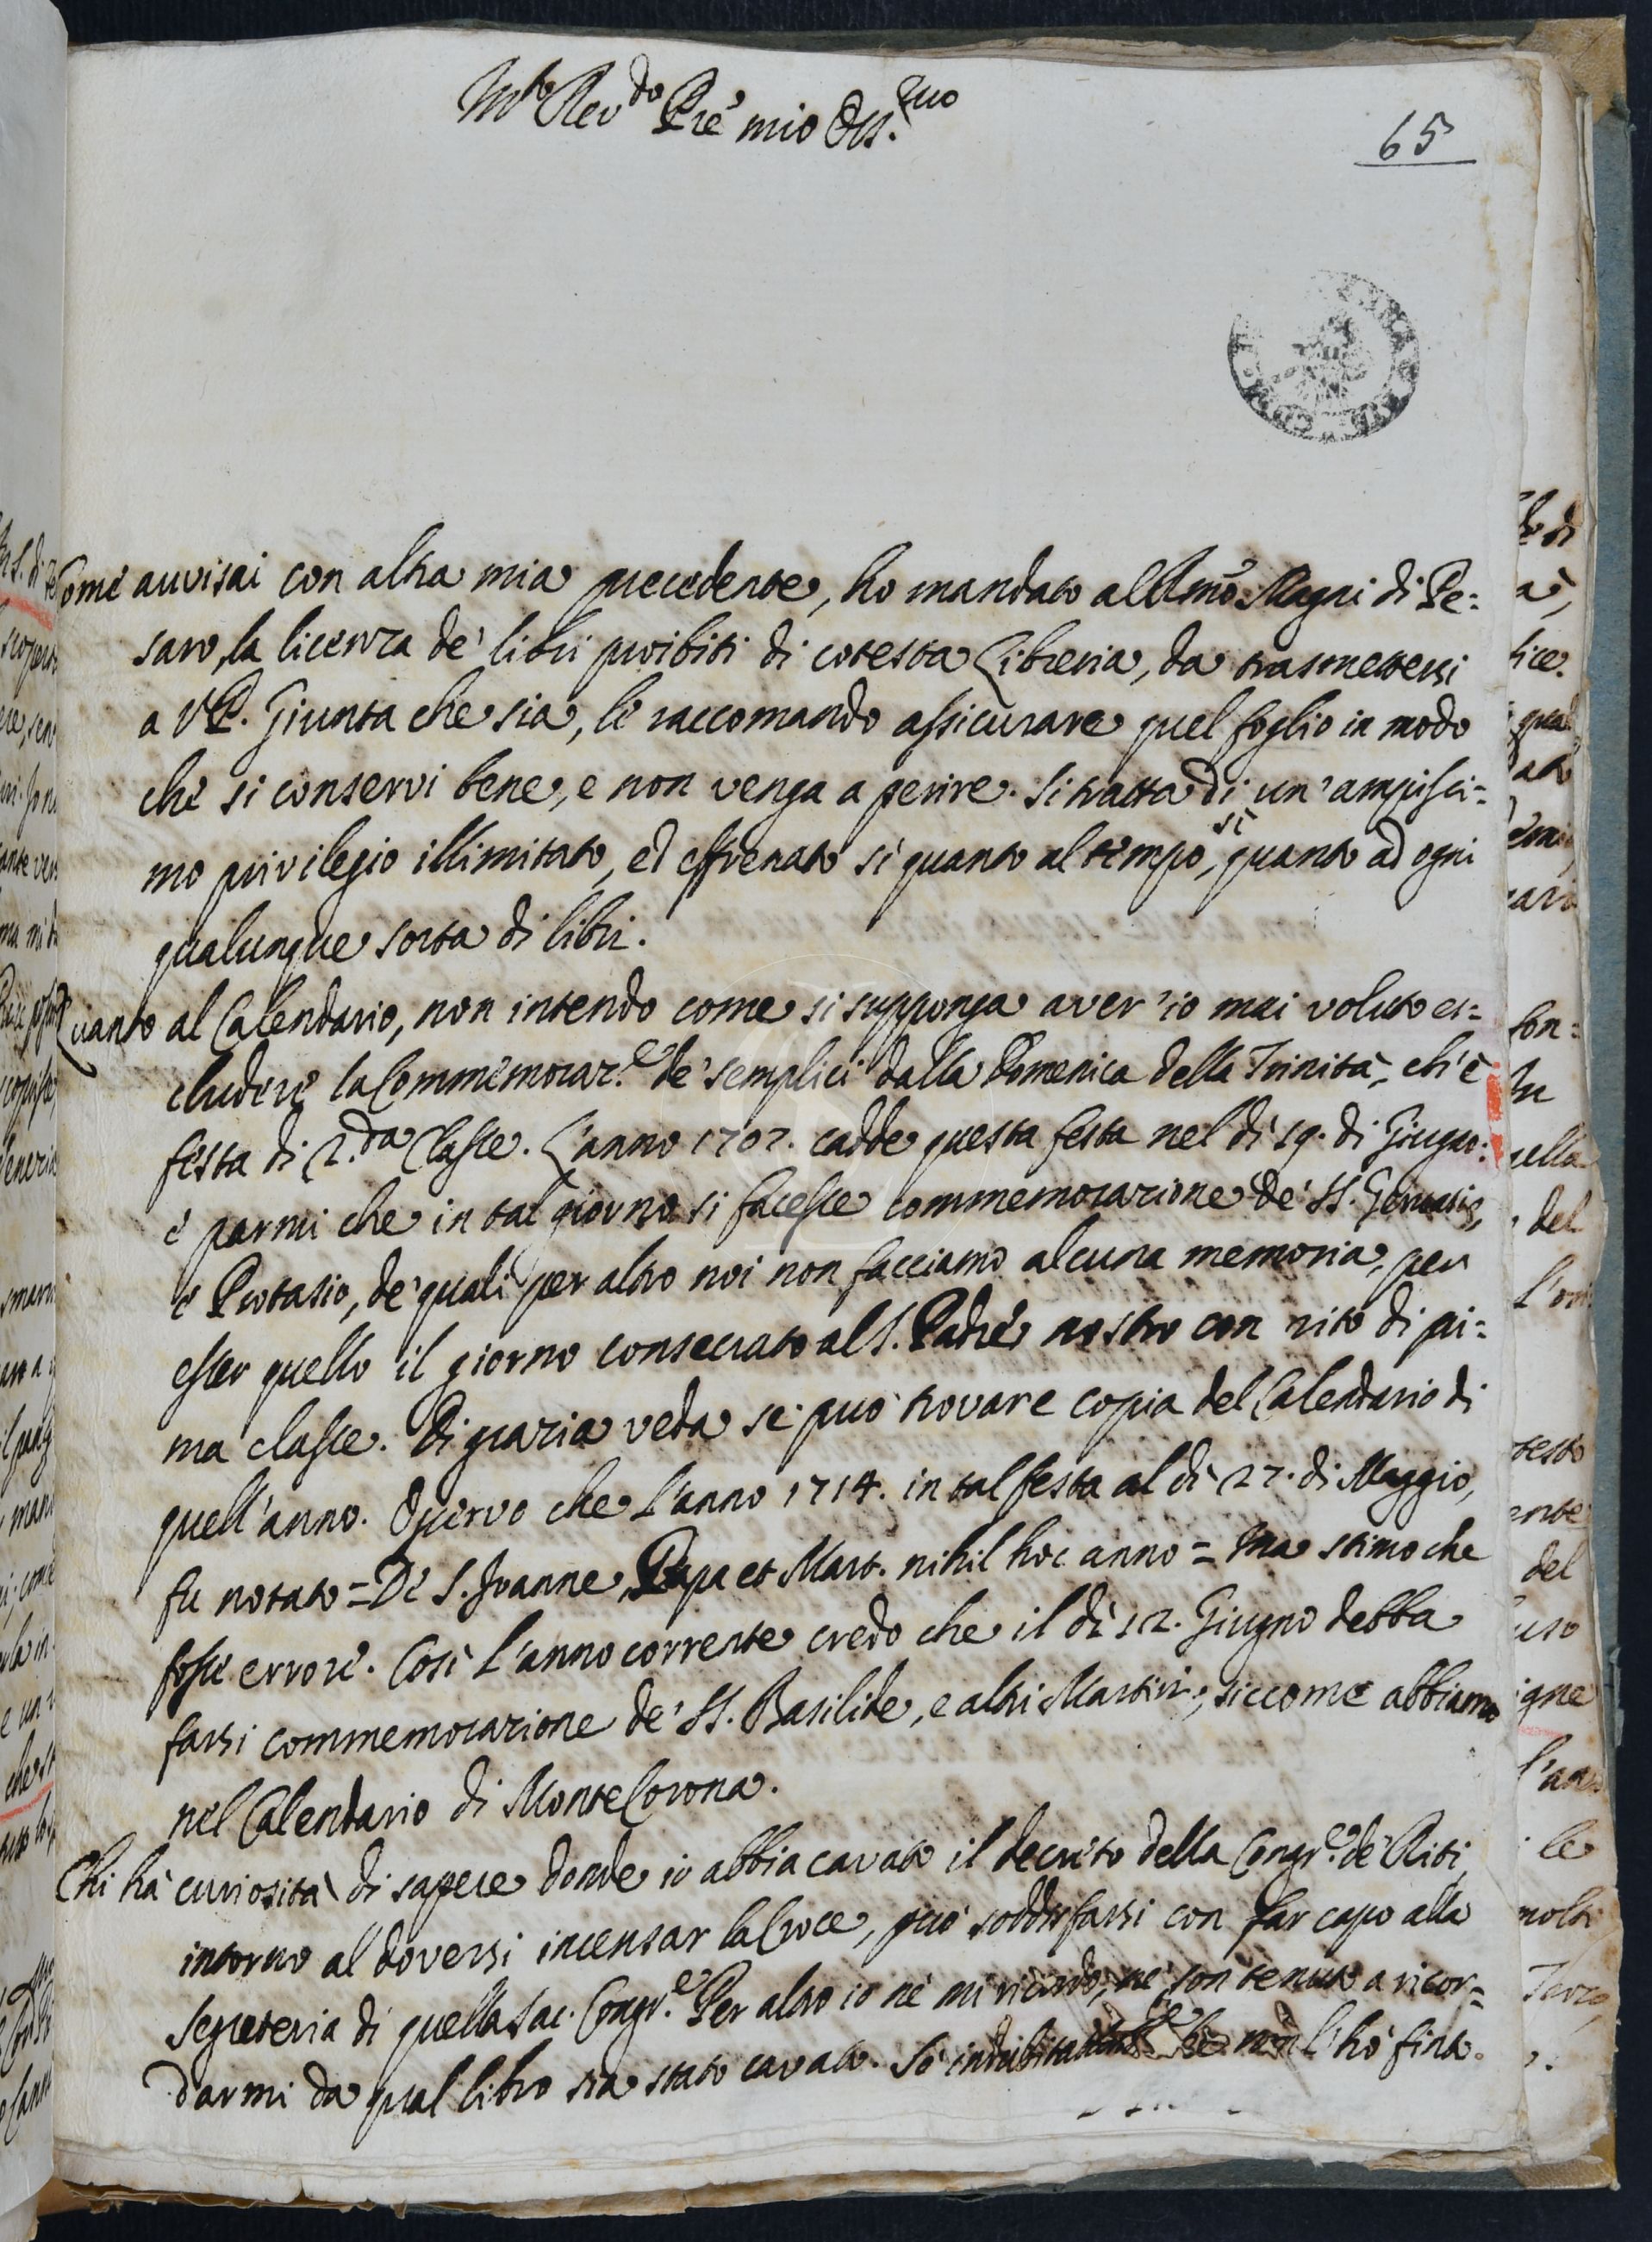 Mto Revdo Pre mio Oss.mo
65
Come avvisai con altra mia precedente, ho mandato all Magni di Pe=
saro, la licenza de' libri proibiti di cotesta Libreria, da trasmettersi
a V P. Giunta che sia, le raccomando assicurare quel foglio in modo
che si conservi bene, e non venga a perire. Si tratta di un' amplissi=
mo privilegio illimitato, ed effrenato sì quanto al tempo, sì quanto ad ogni
qualunque sorta di libri.
Quanto al Calendario, non intendo come si supponga aver' io mai voluto es=
cludere la Commemoraz.e de' semplici dalla Domenica della Trinità, ch' è
festa di 2.da Classe. L'anno 1707. cadde questa festa nel dì 19. di Giugno:
e parmi che in tal giorno si facesse commemorazione de' SS. Gervasio,
e Protasio, de' quali per altro noi non facciamo alcuna memoria, per
esser quello il giorno consecrato al S. Padre nostro con rito di pri=
ma classe. Di grazia veda se può trovare copia del Calendario di
quell' anno. Osservo che l'anno 1714. in tal festa al dì 27. di Maggio,
fu notato = De S. Joanne Papa et Mart. nihil hoc anno = Ma stimo che
fosse errore. Così l'anno corrente credo che il dì 12. Giugno debba
farsi commemorazione de' SS. Basilide, e altri Martiri, siccome abbiamo
nel Calendario di Monte Corona.
Chi hà curiosità di sapere donde io abbia cavato il decreto della Congr.e de' Riti
intorno al doversi incensar la Croce, può soddisfarsi con far capo alla
Segreteria di quella Sac. Congr.e Per altro io nè mi ricordo, nè son tenuto a ricor=
darmi da qual libro sia stato cavato. So che non l'hò finto.